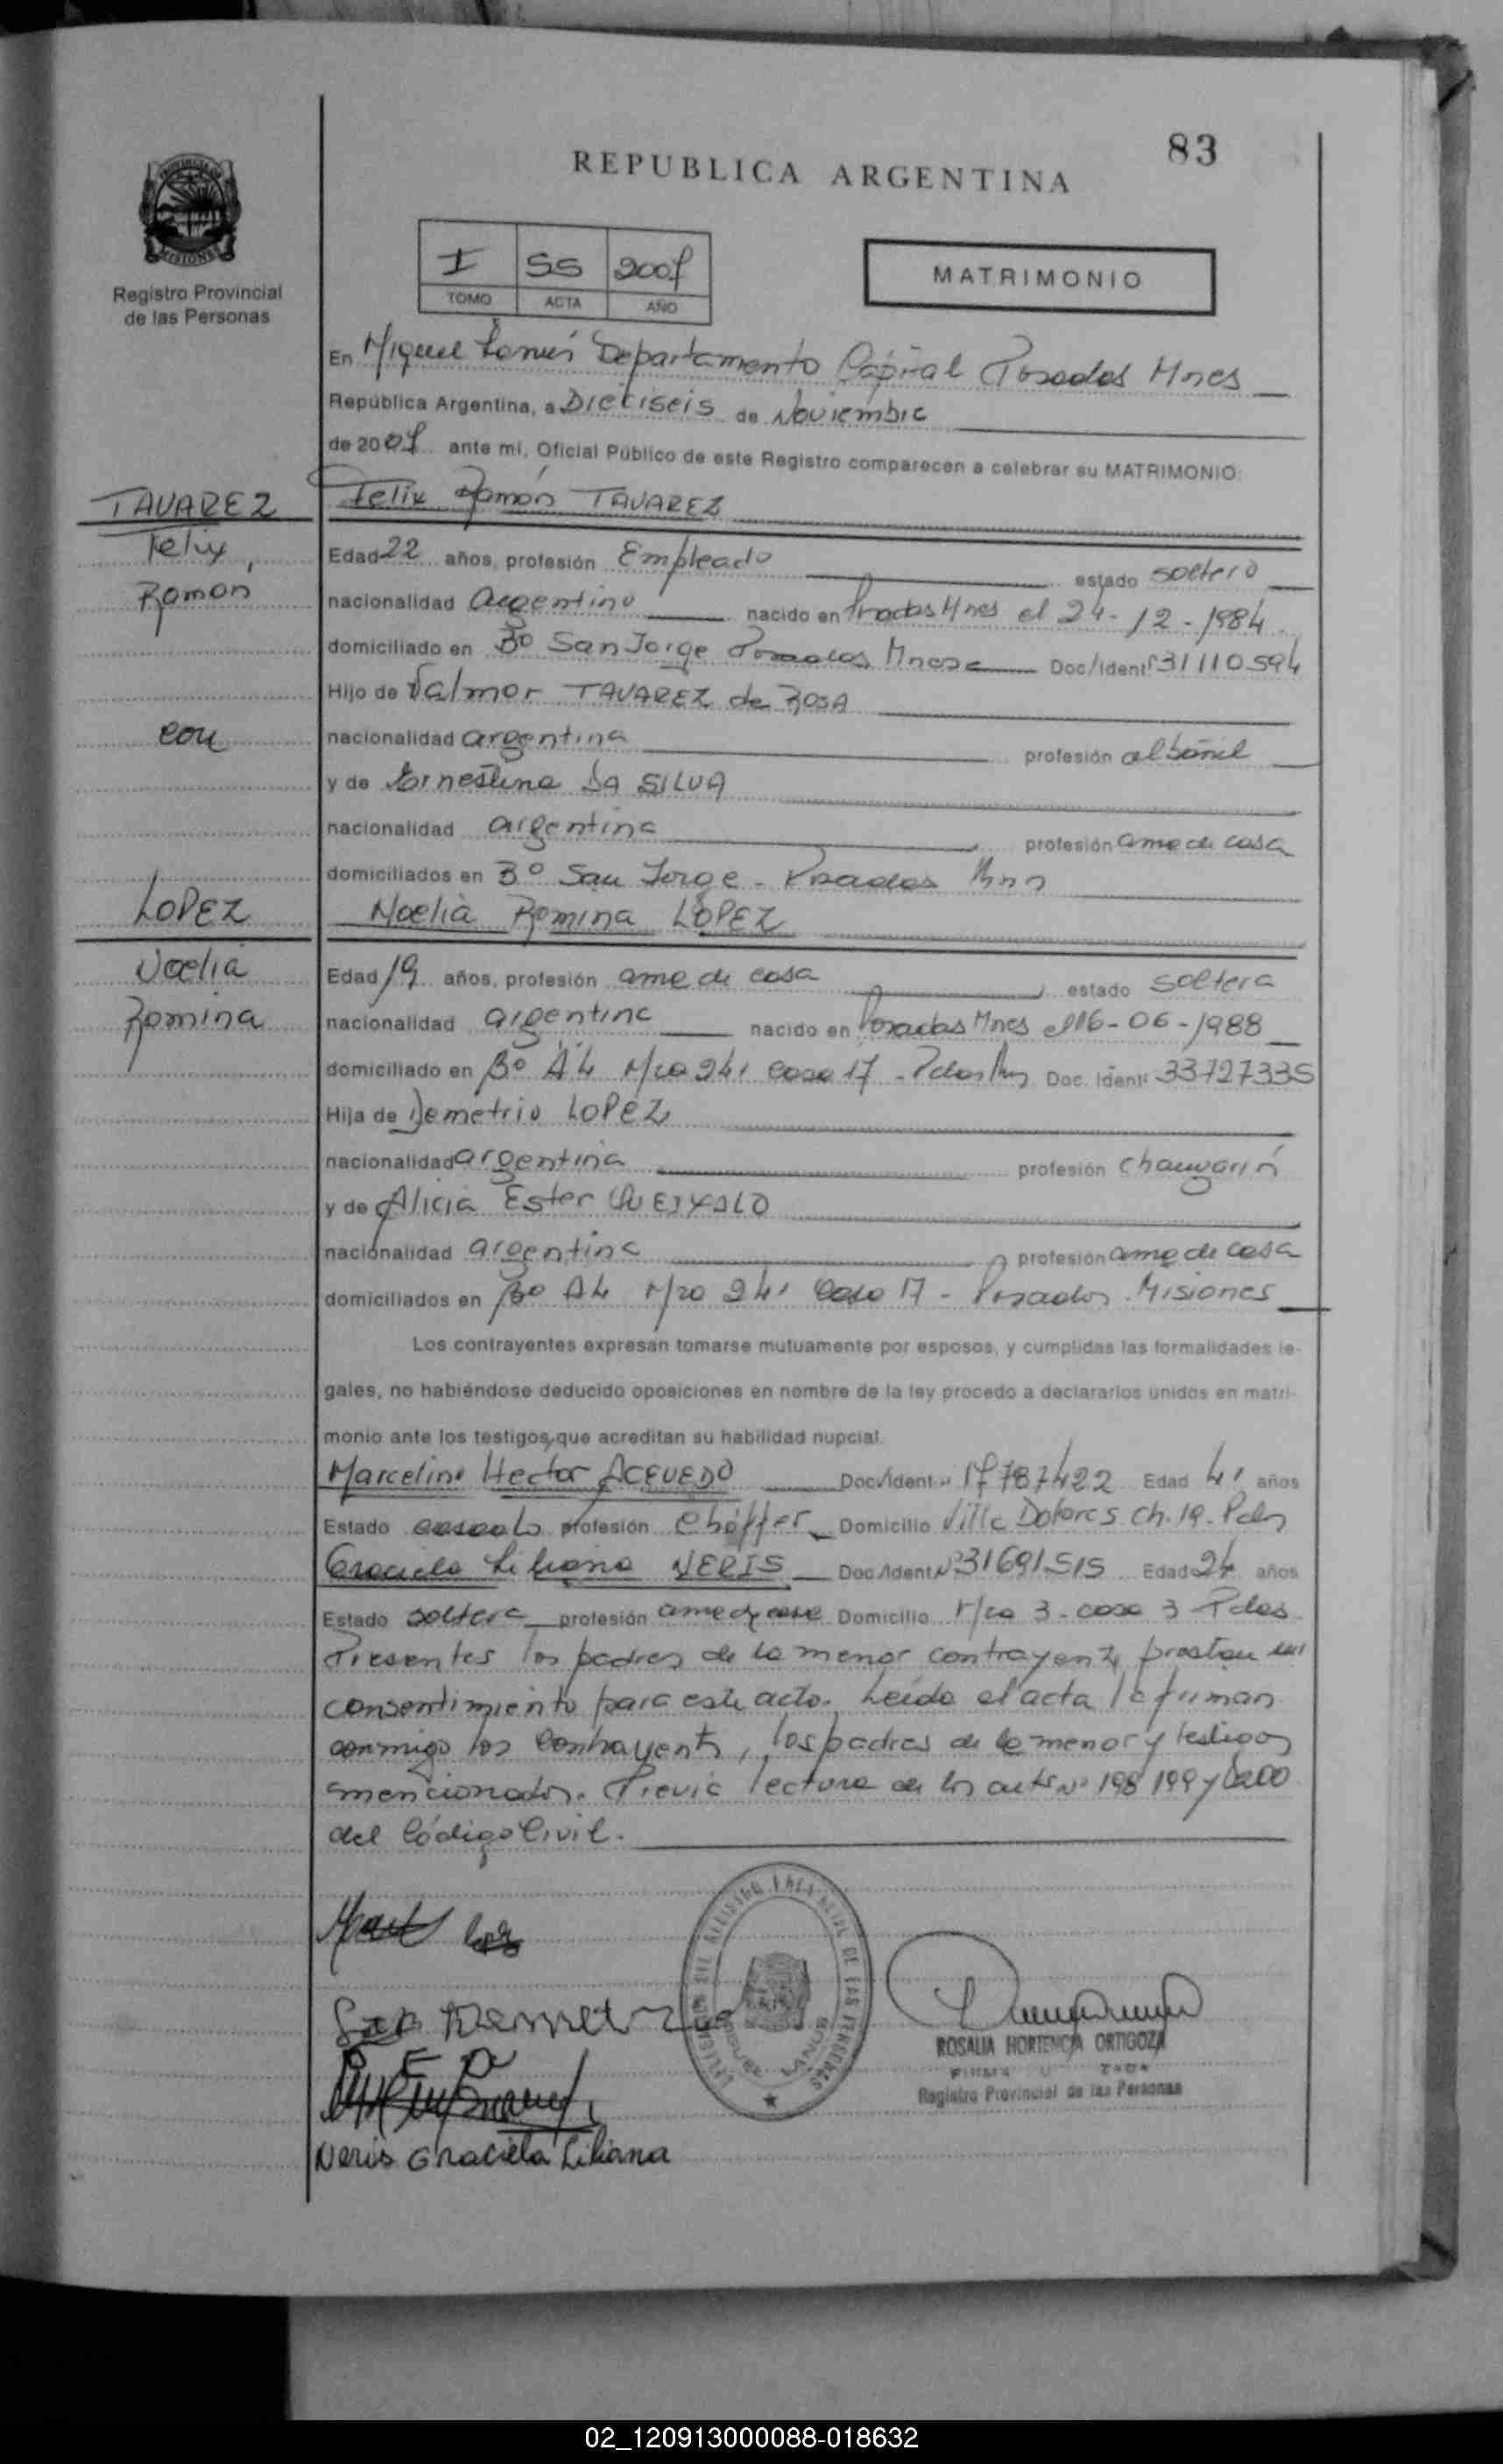 83
REPUBLICA ARGENTINA
PROVINCIA DE
MISIONES
Registro Provincial
de las Personas
I 55 2007
TOMO ACTA AÑO
MATRIMONIO
En Miguel Lanús Departamento Capital Posadas Mnes
República Argentina, a Dieciseis de Noviembre
de 2007 ante mí, Oficial Público de este Registro comparecen a celebrar su MATRIMONIO:
TAVAREZ
Felix
Ramón
con
LOPEZ
Noelia
Romina
Felix Ramón TAVAREZ
Edad 22 años, profesión Empleado estado soltero
nacionalidad argentino nacido en Posadas Mnes el 24-12-1984
domiciliado en Bº San Jorge Posadas Doc/Ident 31110594
Hijo de Valmor TAVAREZ de ROSA
nacionalidad argentina profesión albañil
y de Ernestina DA SILVA
nacionalidad argentina profesión ama de casa
domiciliados en Bº San Jorge - Posadas Mnn
Noelia Romina LOPEZ
Edad 19 años, profesión ama de casa estado soltera
nacionalidad argentina nacido en Posadas Mnes el 16-06-1988
domiciliado en Bº A4 casa 17 - Doc. Ident: 33727335
Hija de Demetrio LOPEZ
nacionalidad argentina profesión
y de Alicia Ester
nacionalidad argentina profesión ama de casa
domiciliados en Bº A4 17 - Posadas - Misiones
Los contrayentes expresan tomarse mutuamente por esposos, y cumplidas las formalidades le-
gales, no habiéndose deducido oposiciones en nombre de la ley procedo a declararlos unidos en matri-
monio ante los testigos, que acreditan su habilidad nupcial.
Marcelino Hector ACEVEDO Doc/Ident 17787422 Edad 41 años
Estado casado profesión Chóffer Domicilio Villa Dolores Ch. 19 - Pdas
Graciela Liliana NERIS Doc/Ident Nº 31691515 Edad 24 años
Estado soltera profesión ama de casa Domicilio 3 - casa 3 Pdas
Presentes los padres de la menor contrayente, prestan su
consentimiento para este acto. Leída el acta la firman
conmigo los contrayentes, los padres de la menor y testigos
mencionados. Previa lectura de los arts Nº 198 199 y 200
del Código Civil.
Neris Graciela Liliana
ROSALIA HORTENCIA ORTIGOZA
Registro Provincial de las Personas
02_120913000088-018632